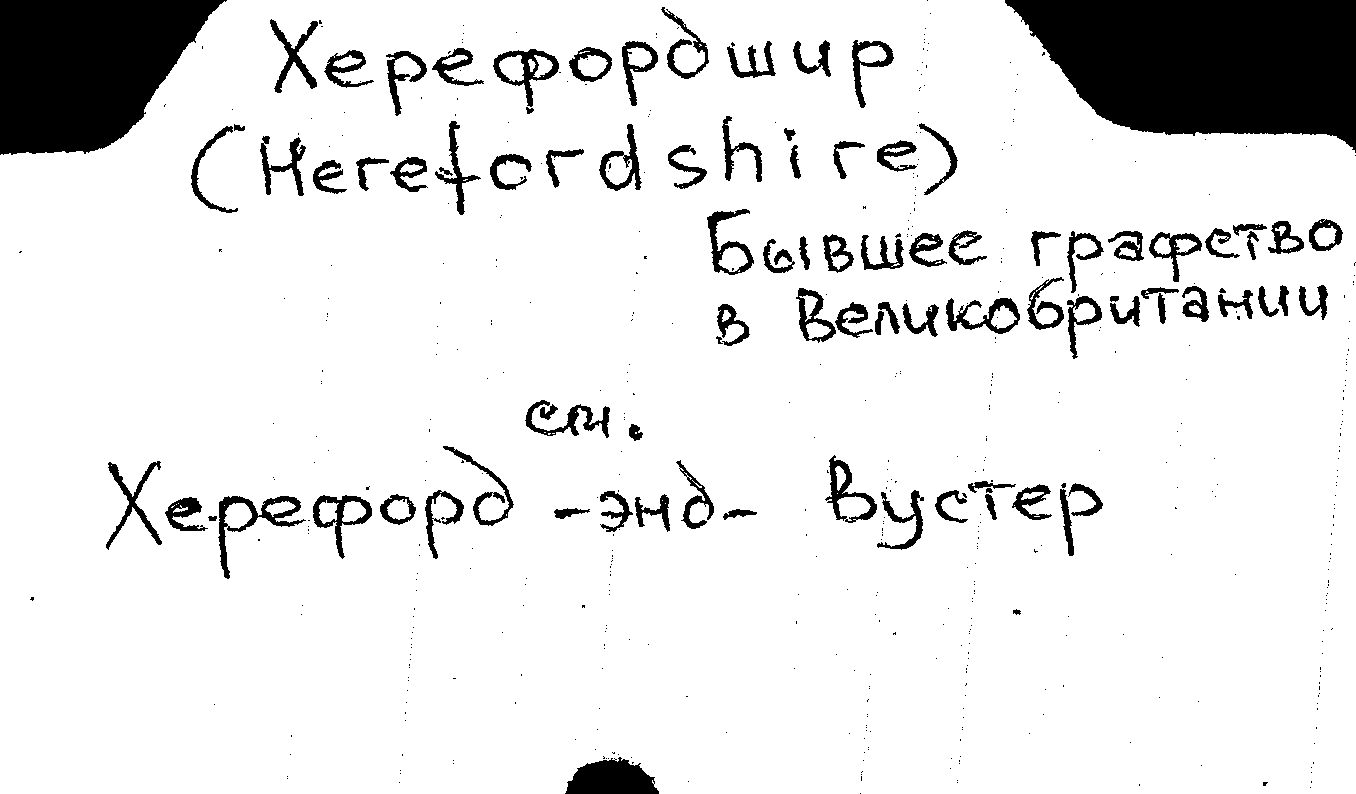 Херефордшир
(Herefordshire)
Бывшее графство
в Великобритании
см.
Херефорд -энд- Вустер